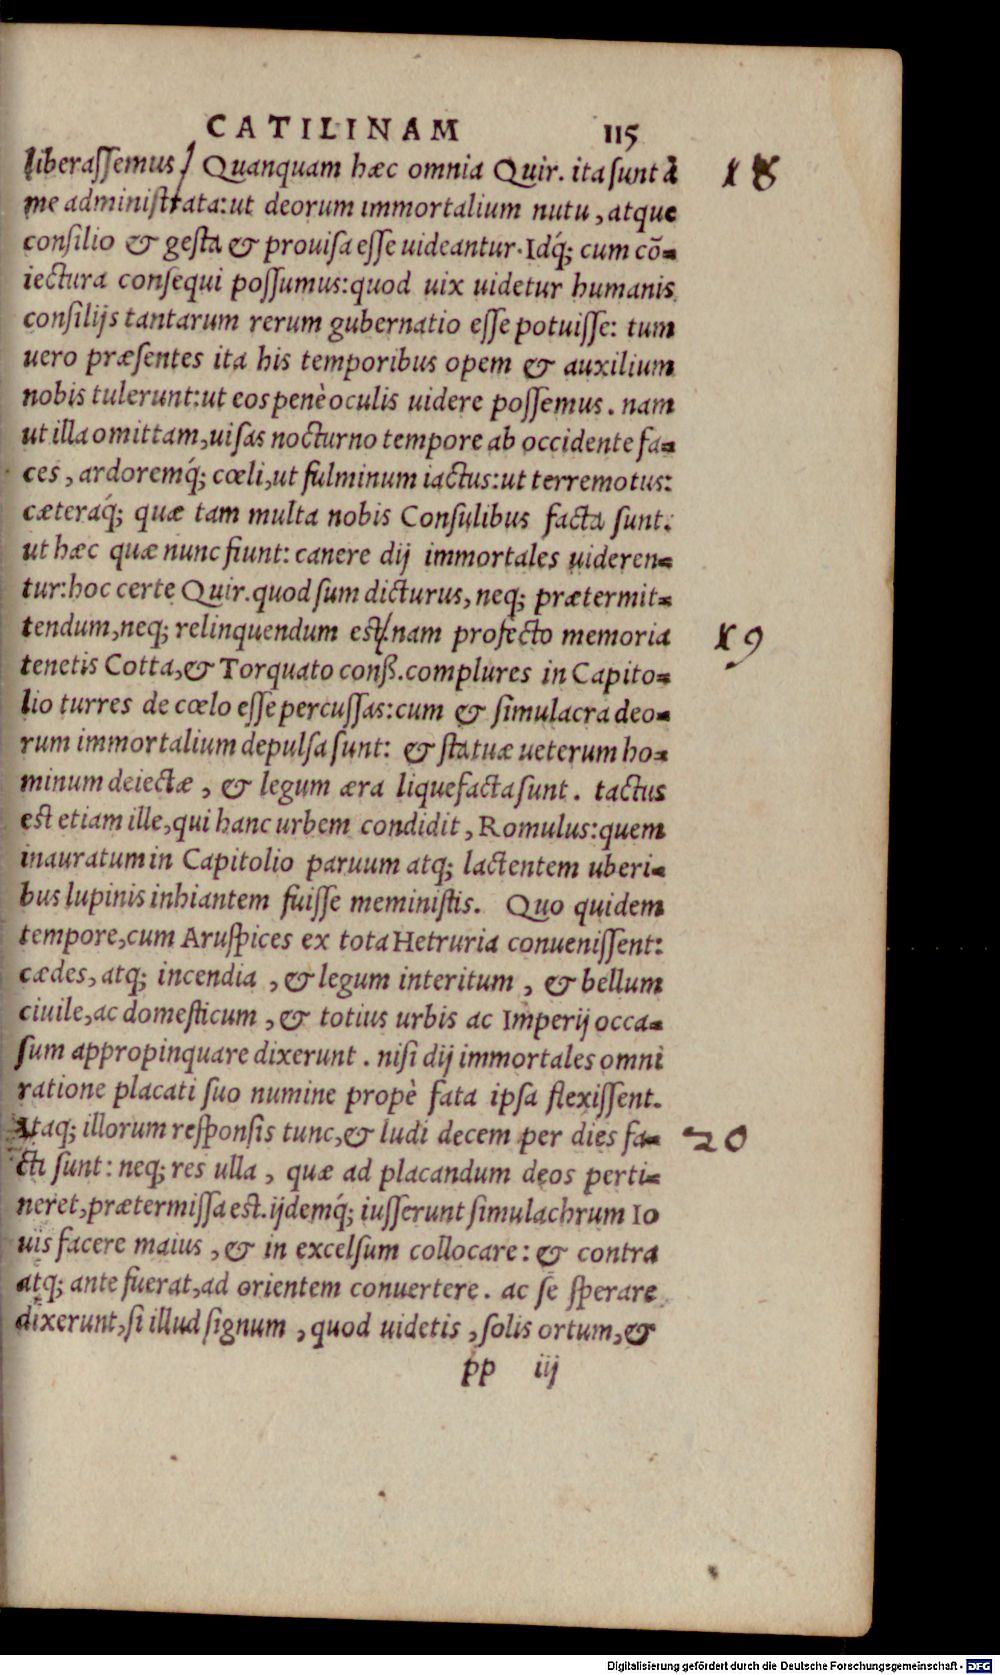 CATILINAM 115
liberaſſemus / Quanquam hæc omnia Quir. ita ſunt à 18
me adminiſtrata: ut deorum immortalium nutu, atque
conſilio & geſta & prouiſa eſſe uideantur. Idq́; cum cō-
iectura conſequi poſſumus: quod uix uidetur humanis
conſilijs tantarum rerum gubernatio eſſe potuiſſe: tum
uero præſentes ita his temporibus opem & auxilium
nobis tulerunt: ut eos penè oculis uidere poſſemus. nam
ut illa omittam, uiſas nocturno tempore ab occidente fa-
ces, ardoremq́; cœli, ut fulminum iactus: ut terremotus:
cæteraq́; quæ tam multa nobis Conſulibus facta ſunt.
ut hæc quæ nunc fiunt: canere dij immortales uideren-
tur: hoc certe Quir. quod ſum dicturus, neq; prætermit-
tendum, neq; relinquendum eſt / nam profecto memoria 19
tenetis Cotta, & Torquato conß. complures in Capito-
lio turres de cœlo eſſe percuſſas: cum & ſimulacra deo-
rum immortalium depulſa ſunt: & ſtatuæ ueterum ho-
minum deiectæ, & legum æra liquefacta ſunt. tactus
eſt etiam ille, qui hanc urbem condidit, Romulus: quem
inauratum in Capitolio paruum atq; lactentem uberi-
bus lupinis inhiantem fuiſſe meminiſtis. Quo quidem
tempore, cum Aruſpices ex tota Hetruria conueniſſent:
cædes, atq; incendia, & legum interitum, & bellum
ciuile, ac domeſticum, & totius urbis ac Imperij occa-
ſum appropinquare dixerunt. niſi dij immortales omni
ratione placati ſuo numine propè fata ipſa flexiſſent.
Itaq; illorum reſponſis tunc, & ludi decem per dies fa- 20
cti ſunt: neq; res ulla, quæ ad placandum deos perti-
neret, prætermiſſa eſt. ijdemq́; iuſſerunt ſimulachrum Io
uis facere maius, & in excelſum collocare: & contra
atq; ante fuerat, ad orientem conuertere. ac ſe ſperare
dixerunt, ſi illud ſignum, quod uidetis, ſolis ortum, &
pp iij
Digitalisierung gefördert durch die Deutsche Forschungsgemeinschaft - DFG